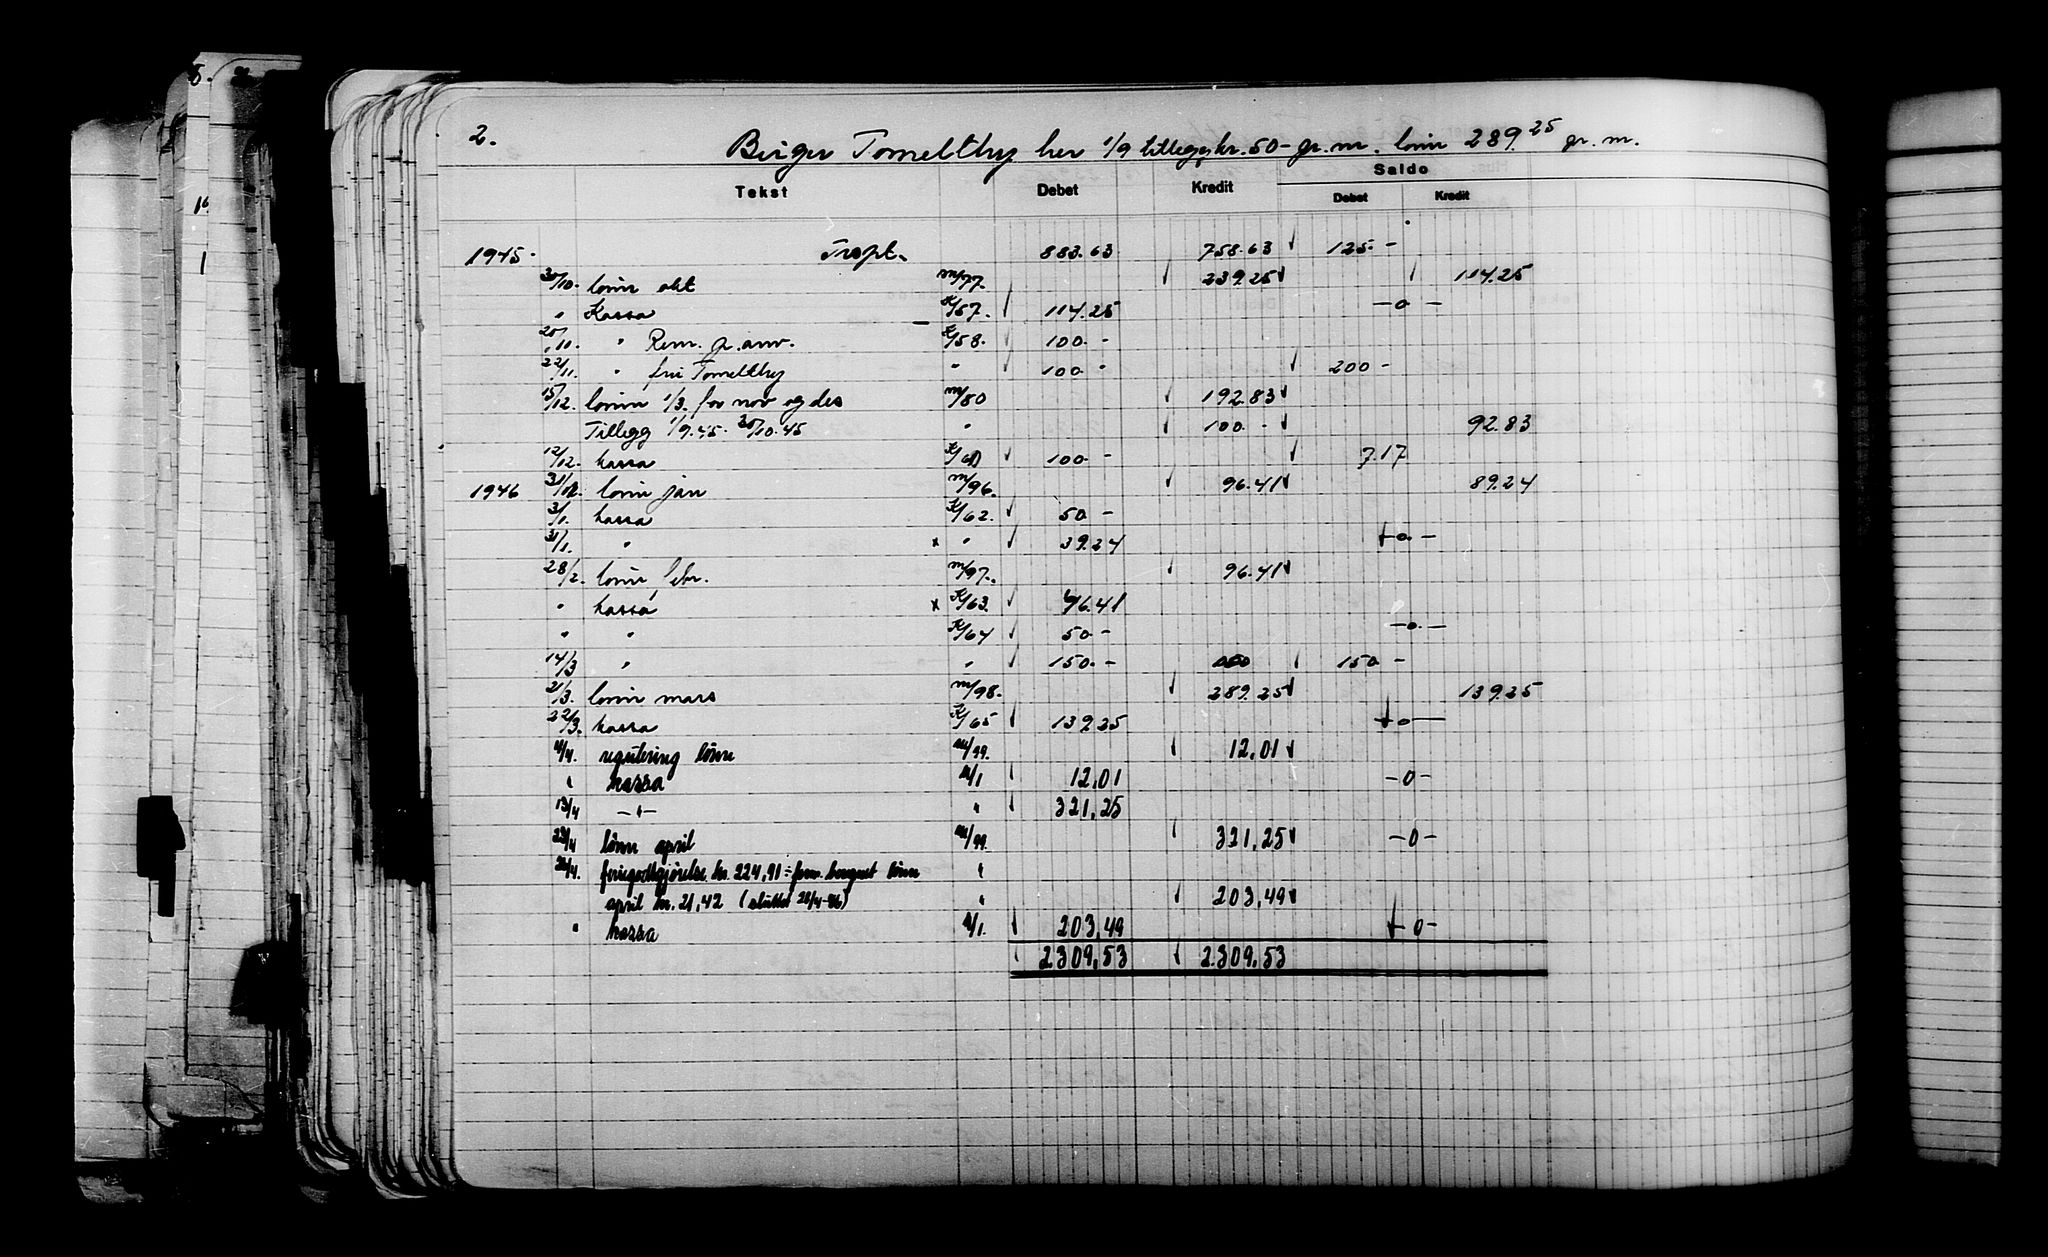 2.
Birger Tomelthy her 1/9 tillegg kr. 50- pr. m. lønn 289.25 pr. m.
Saldo
Tekst Debet Kredit Debet Kredit
1945 Trspt. 883.63 758.63 125.-
30/10. lønn okt m/77. 239.25 114.25
" Kassa K/57. 114.25 -0-
20/11. " Rem. p. anv. K/58. 100.-
22/11. " fru Tomelthy " 100.- 200-
15/12. lønn 1/3. for nov og des m/80 192.83
Tillegg 1/9.45 - 30/10.45 " 100.- 92.83
12/12. kassa K/60 100.- 7.17
1946 31/1. lønn jan m/96. 96.41 89.24
3/1. kassa K/62. 50.-
31/1. " x " 39.24 -0-
28/2. lønn febr. m/97. 96.41
" kassa x K/63. 46.41
" " K/64 50.- -0-
14/3 " " 150.- 150-
21/3. lønn mars m/98. 289.25 139.25
22/3. kassa K/65 139.25 -0-
4/4. regulering lønn m/99. 12,01
" kassa k/1 12,01 -0-
13/4 -"- " 321,25
23/4 lønn april m/99. 321,25 -0-
26/4. feriegodtgjørelse kr. 224,91 ÷ lønn
april kr. 21,42 (sluttet 28/4-46) " 203,49
" kassa k/1. 203,49 -0-
2309,53 2309,53